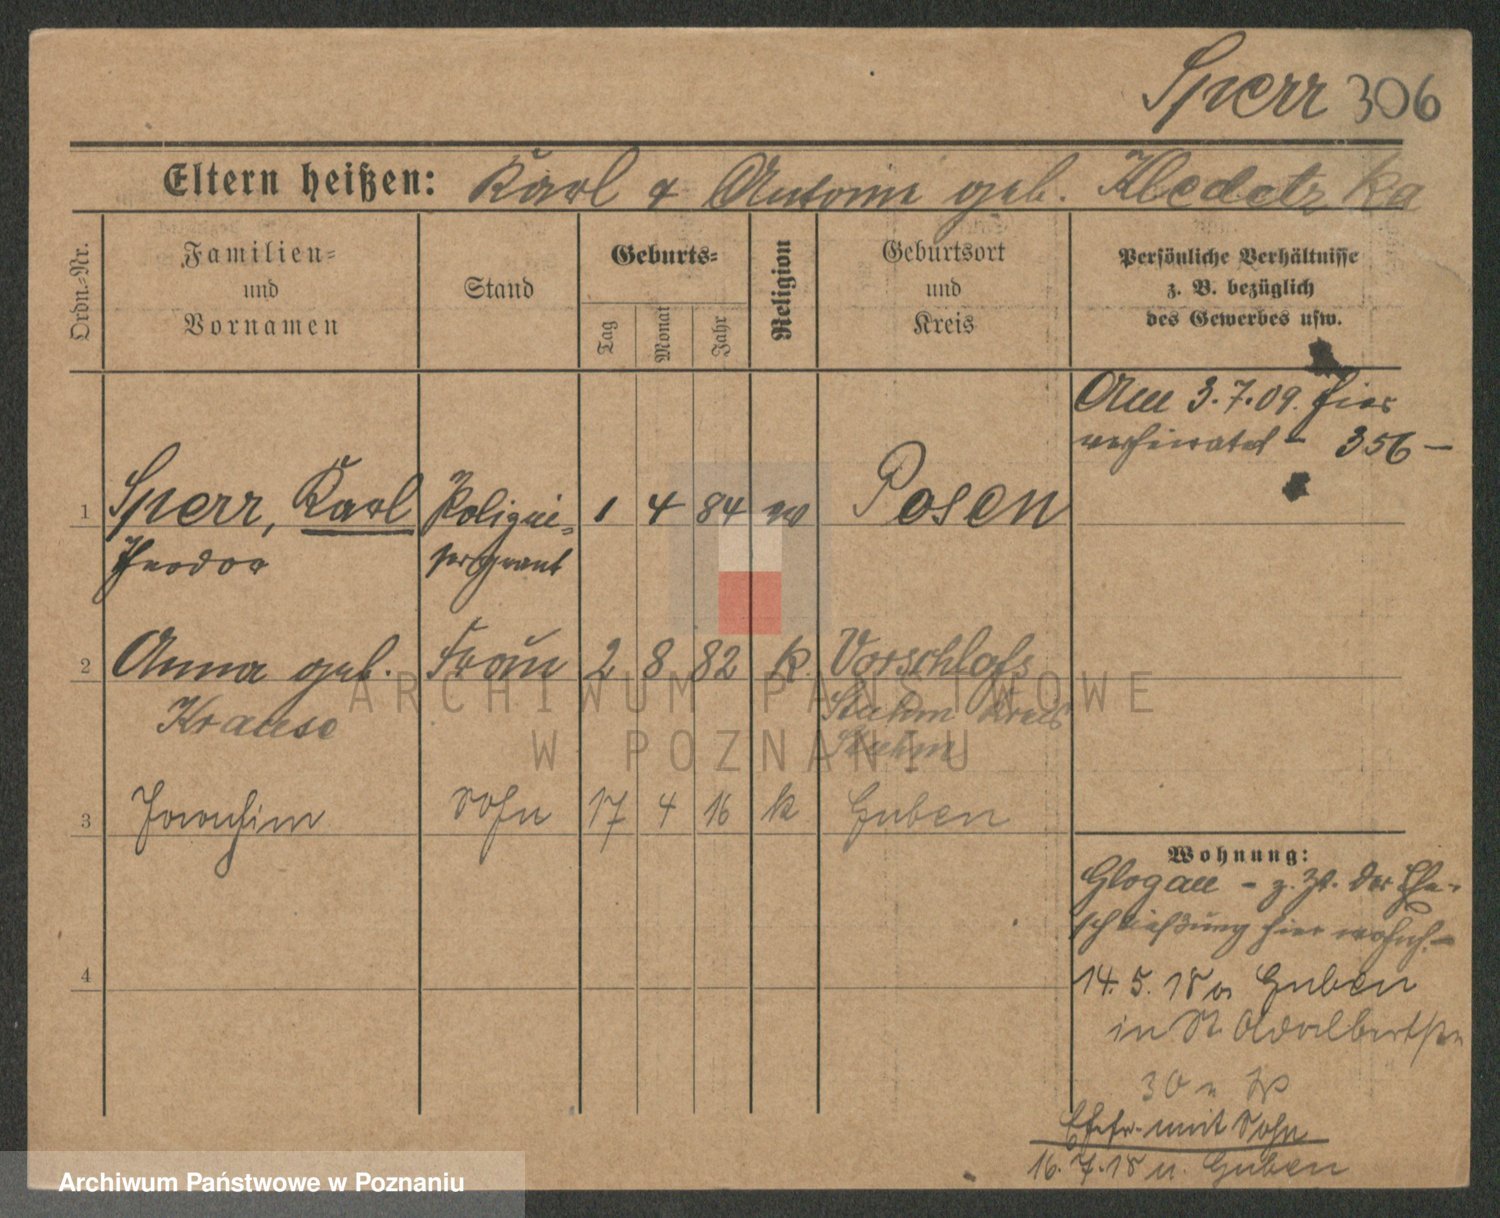 Sperr 306
Eltern heißen: Karl & Antonie geb. Kledetzka
Ordn.-Nr.
Familien-
und
Vornamen
Stand
Geburts-
Tag
Monat
Jahr
Religion
Geburtsort
und
Kreis
Persönliche Verhältnisse
z. B. bezüglich
des Gewerbes usw.
Am 3.7.09. hier
verheiratet - 356 -
1 Sperr, Karl Polizei- 1 4 84 Posen
Theodor sergeant
2 Anna geb. Frau 2 8 82 k. Vorschloss
Krause Stuhm Kreis
Stuhm
3 Joachim Sohn 17 4 16 k Guben
Wohnung:
Glogau - z. Zt. der Ehe-
schließung hier wohnh. -
4
14. 5. 18 Guben
in St. Adalbertstr
30
Ehefr. mit Sohn
16.7.18 n. Guben
ARCHIWUM PAŃSTWOWE
W POZNANIU
Archiwum Państwowe w Poznaniu